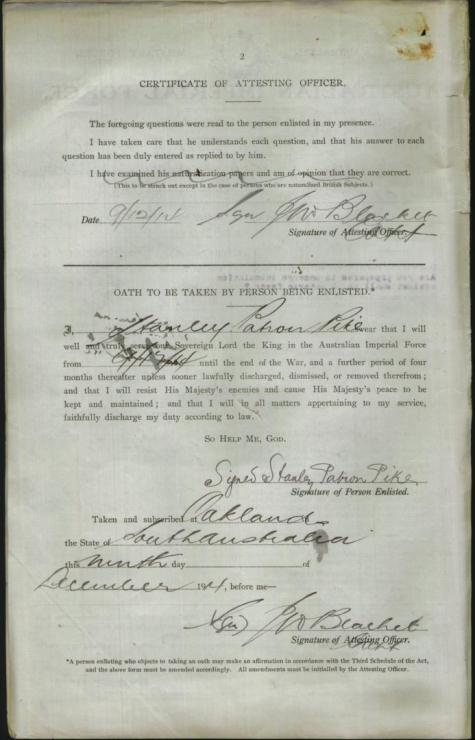 2
CERTIFICATE OF ATTESTING OFFICER.
The foregoing questions were read to the person enlisted in my presence.
I have taken care that he understands each question, and that his answer to each
question has been duly entered as replied to by him.
I have examined his naturalization papers and am of opinion that they are correct.
(This to be struck out except in the case of persons who are naturalized British Subjects.)
Date 9/12/14 Sgn J W Blacket
Signature of Attesting Officer.
OATH TO BE TAKEN BY PERSON BEING ENLISTED.*
I, Stanley Patron Pike swear that I will
well and truly serve our Sovereign Lord the King in the Australian Imperial Force
from 9/12/14 until the end of the War, and a further period of four
months thereafter unless sooner lawfully discharged, dismissed, or removed therefrom;
and that I will resist His Majesty's enemies and cause His Majesty's peace to be
kept and maintained; and that I will in all matters appertaining to my service,
faithfully discharge my duty according to law.
SO HELP ME, GOD.
Signed Stanley Patron Pike
Signature of Person Enlisted.
Taken and subscribed at Oakland
the State of South Australia
this ninth day of
December 1914, before me—
Sgn J W Blacket
Signature of Attesting Officer.
*A person enlisting who objects to taking an oath may make an affirmation in accordance with the Third Schedule of the Act,
and the above form must be amended accordingly. All amendments must be initialled by the Attesting Officer.